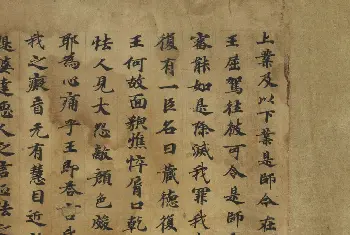 上業及以下業是師今在
王屈駕往彼可令是師
審能如是除滅我罪我
復有一臣名曰藏德復
王何故面貌憔悴脣口乾
怯人見大怨敵顏色
耶為心痛乎王即荅言
我之癡盲无有慧目近
婆達惡人之言正法